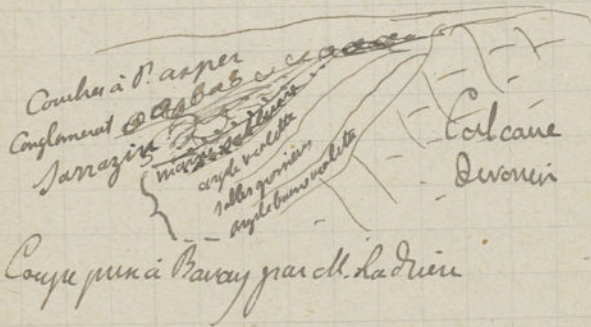 Couches à P. asper
Conglomerat
Sarrazin
marne
argile violette
sables grossiers
argile brune violette
Calcaire
devonien
Coupe prise à Bavay par M. Ladrière